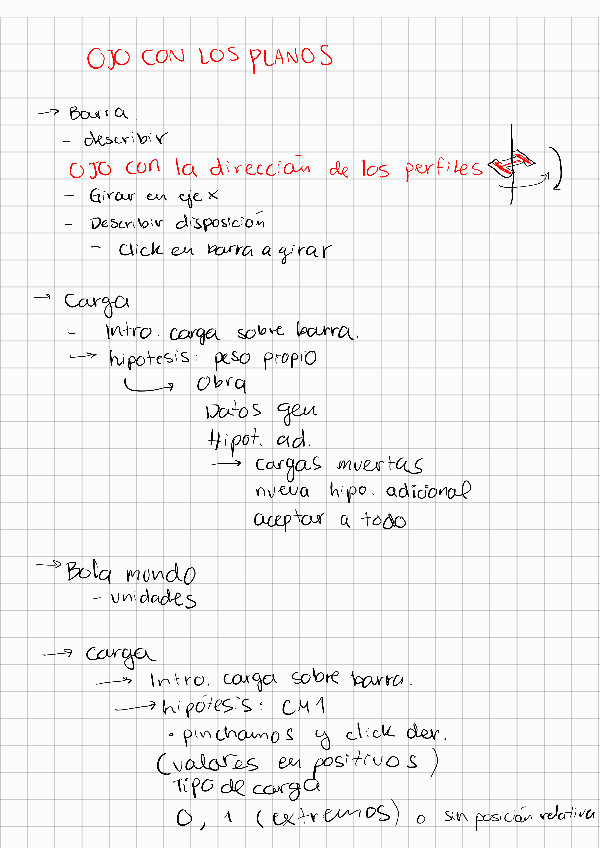 OJO CON LOS PLANOS
→ Barra
- describir
OJO con la dirección de los perfiles
- Girar en eje x
- Describir disposición
- Click en barra a girar
→ Carga
- Intro. carga sobre barra.
→ hipotesis: peso propio
→ Obra
Datos gen
Hipot. ad.
→ cargas muertas
nueva hipo. adicional
aceptar a todo
→ Bola mundo
- unidades
→ carga
→ Intro. carga sobre barra.
→ hipótesis: CM1
• pinchamos y click der.
(valores en positivos)
Tipo de carga
0, 1 (extremos) o sin posición relativa